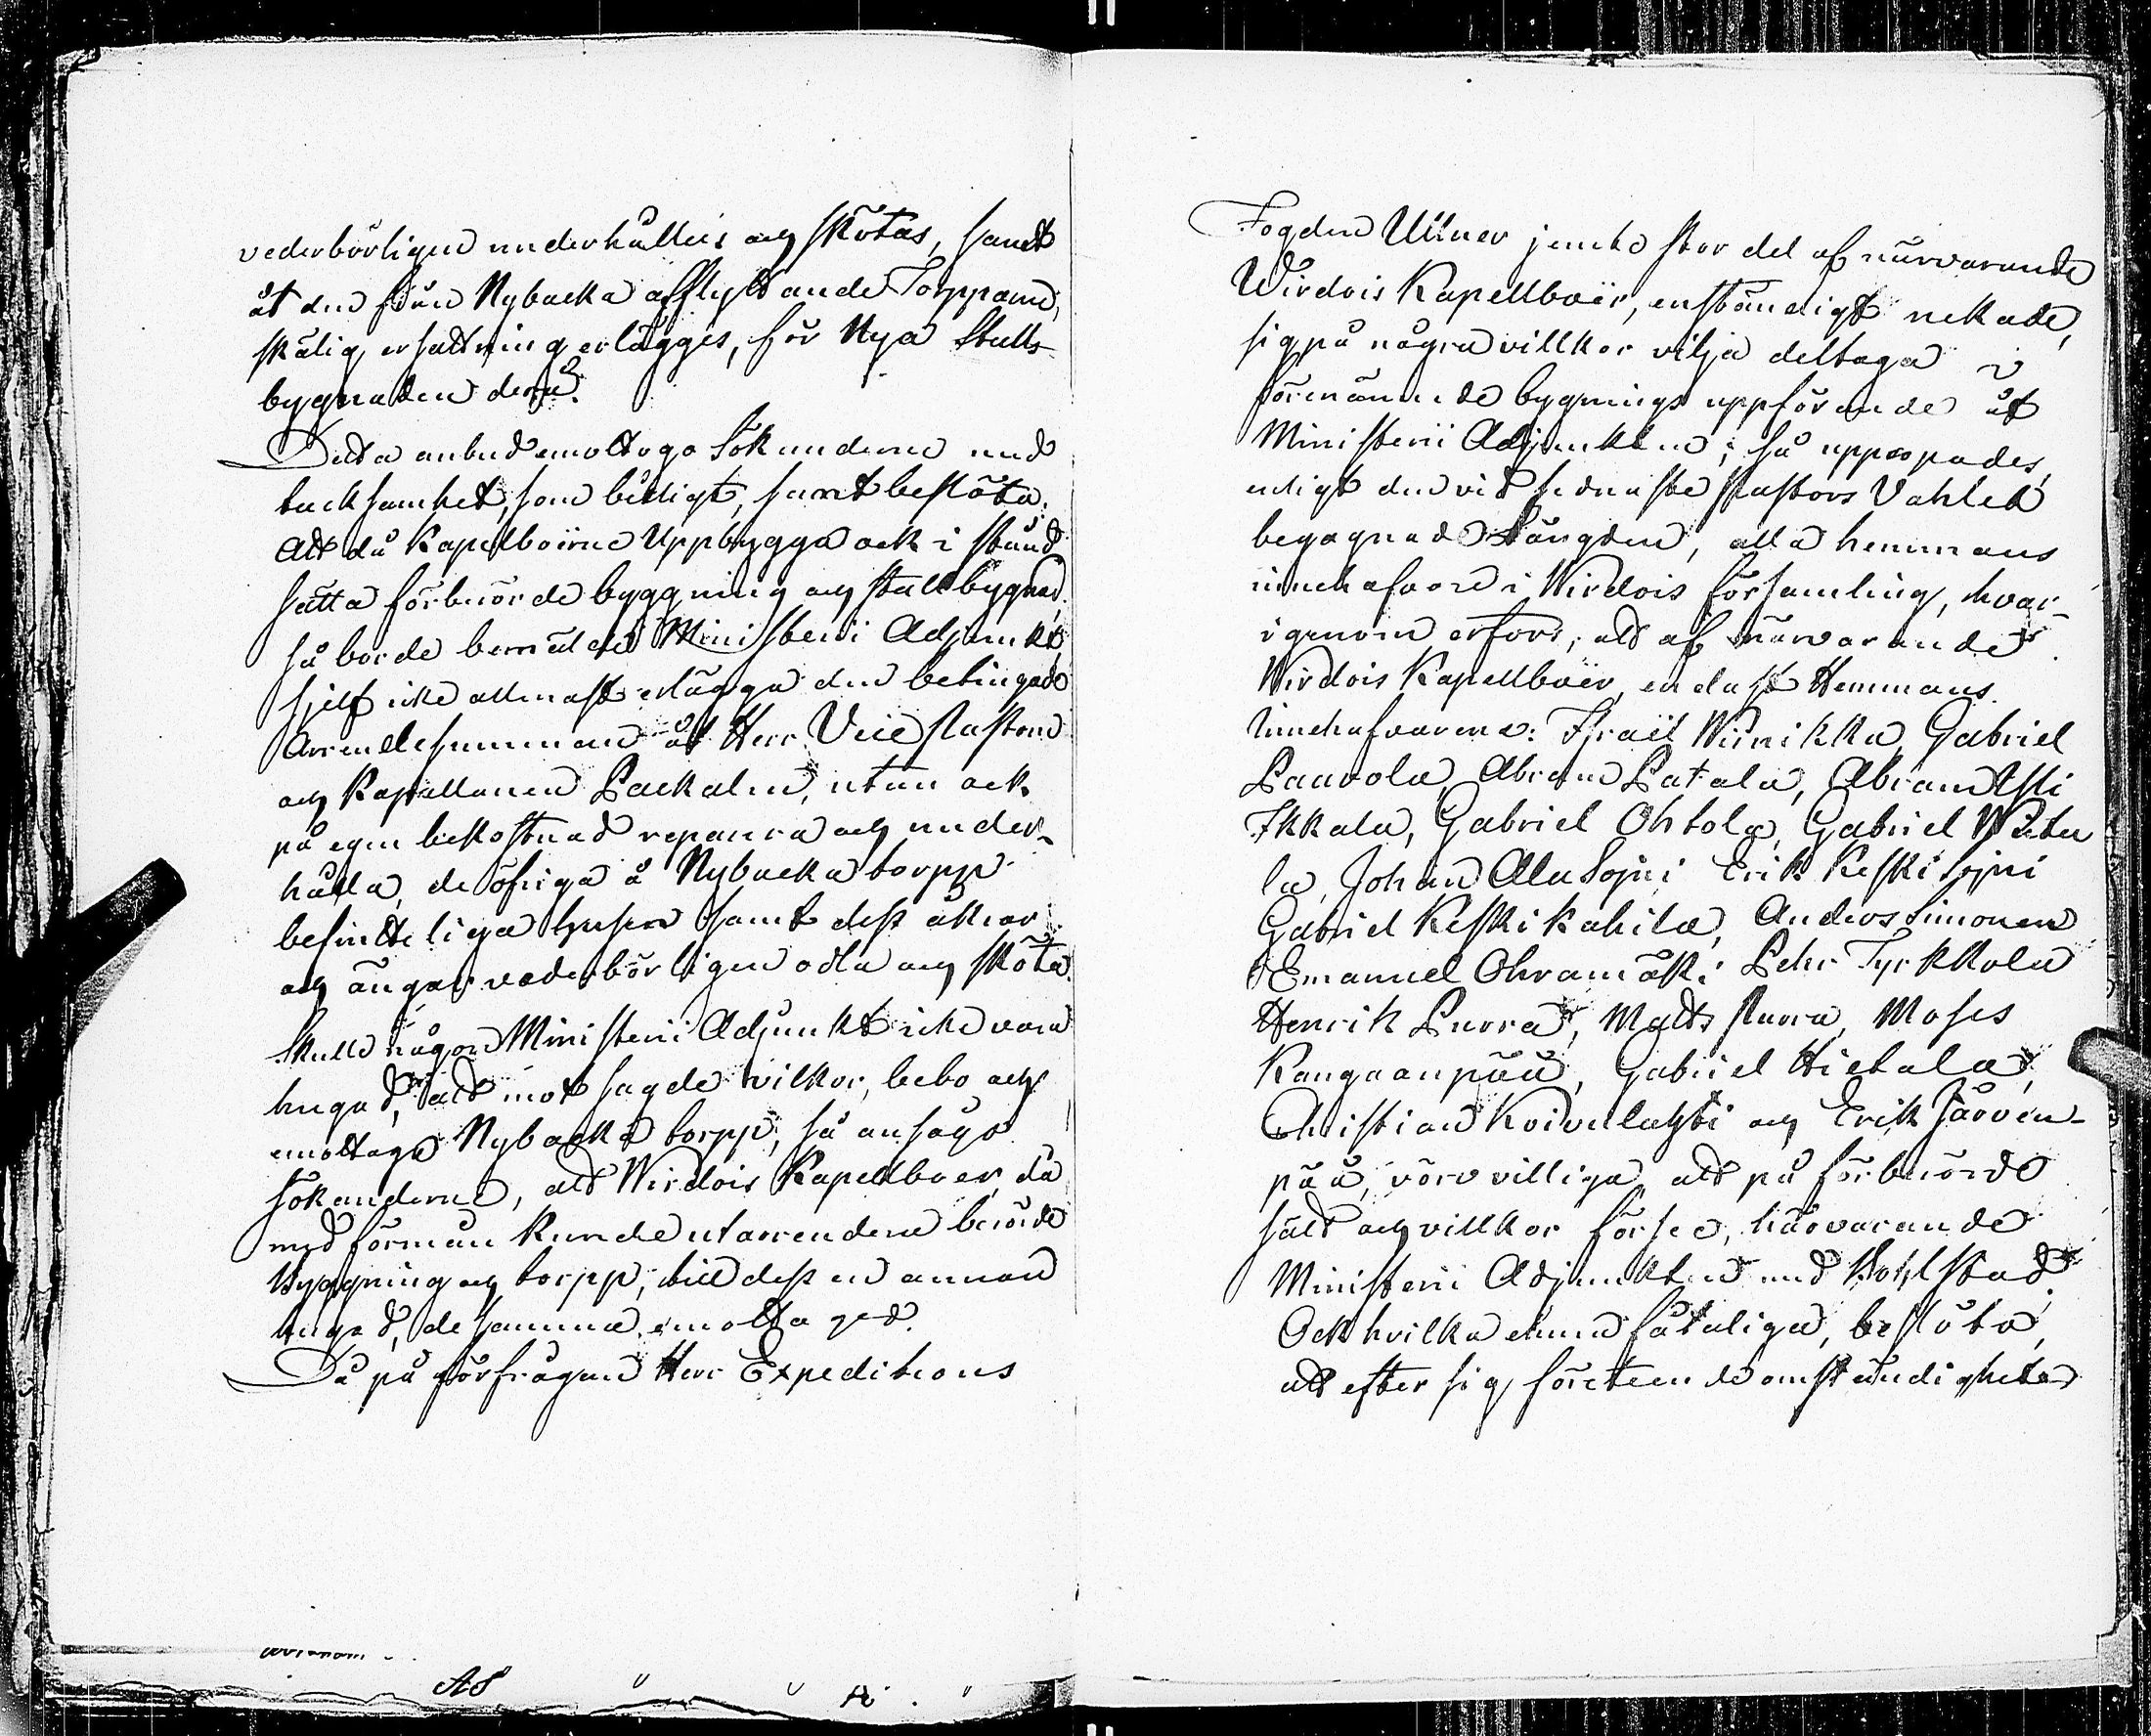 vederbörligen underhålles och skötas, samt
åt den från Nybacka afflyttande Torpparen,
skälig ersättning erlägges, för Nya Stall-
bygnaden derå.
Detta anbud emottogo Sökanderne med
tacksamhet, som billigt, samt beslöto:
Att då Kapellboerne Uppbygga ock i stånd
sätta förberörde byggning och stallbygnad,
så borde bemälde Ministerii Adjunkt,
sjelf icke allenast erlägga den betingade
Arrendesumman åt Herr Vice Pastorn
och Kapellanen Packalen, utan ock
på egen bekostnad reparera och under-
hålla, de öfriga å Nybacka torpp
befindteliga husen samt dess åkrar
och ängar vederbörligen odla och sköta.
Skulle någon Ministerii Adjunkt icke vara
hugad, att mot sagde vilkor, bebo och
emottaga Nybacka torpp, så ansågo
Sökanderne, att Wirdois Kapellboer, då
med förmån kunde utarrendera berörde
byggning och torpp, till dess en annan
hugad, de samma emottaged.
Då på förfrågan Herr Expeditions
Fogden Ulner jemte stor del af närvarande
Wirdois Kapellboer, enständigt nekade,
sig på några villkor vilja deltaga i
förenämnde bygnings uppförande åt
Ministerii Adjunkten; så uppropades,
enligt den vid sednaste Pastors Vahlet
begagnade Längden, alla hemmans
innehafvare i Wirdois församling, hvar-
igenom erfors, att af närvarande
Wirdois Kapellboer, endast Hemmans
innehafvarene: Israel Wiinikka, Gabriel
Paavola, Abram Patala, Abram Isti
Ikkala, Gabriel Ohtola, Gabriel
la, Johan Ala Sojni Erik Keski Sojni
Gabriel Keski Kahila, Anders Simonen
Emanuel Ohramäki Pehr Tyrkkola
Henrik Purra, Matts Purra, Moses
Kangaanpää, Gabriel Hietala,
Christian Koivulahti och Erik Järven-
pää, vore villiga att på förberörde
sätt och villkor förse, härvarande
Ministerii Adjunkten med Bohlstad.
Ock hvilka ehuru fåtaliga, beslöto,
att efter sig företeende omständigheter